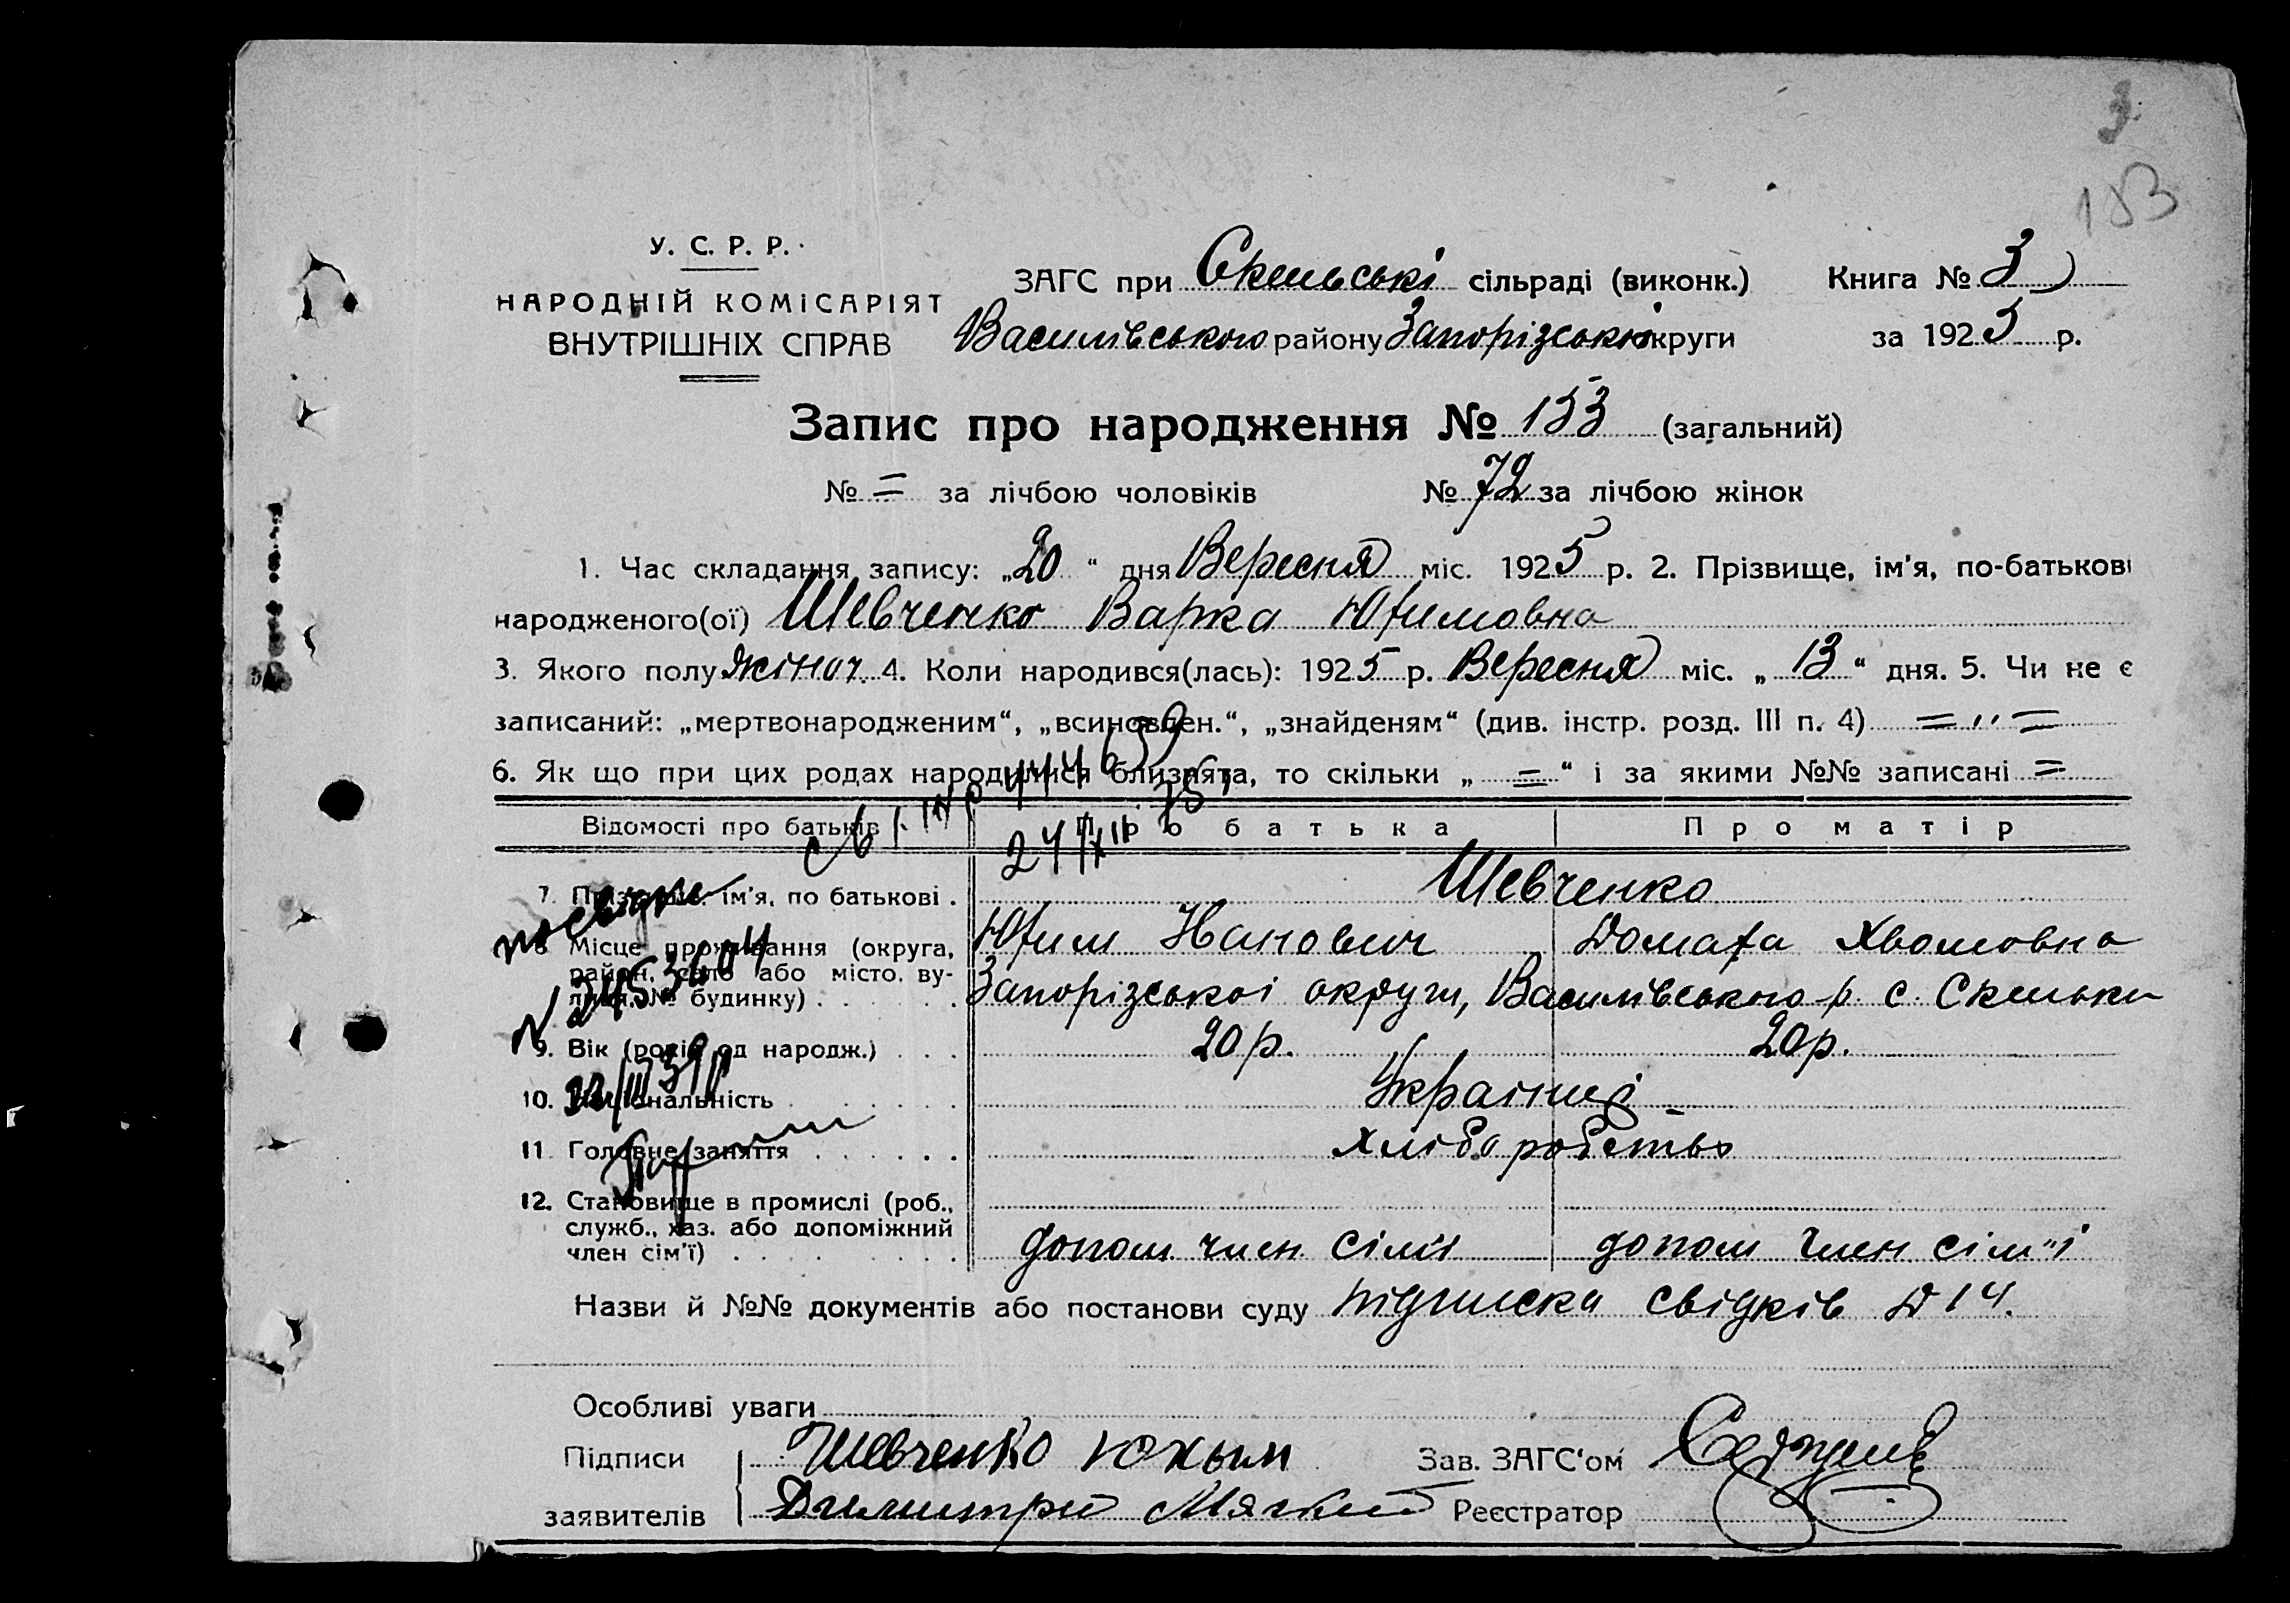 3
183
У. С. Р. Р.
НАРОДНІЙ КОМІСАРІЯТ
ВНУТРІШНІХ СПРАВ
ЗАГС при Скельські сільраді (виконк.) Книга № 3
Василівського району Запорізської округи за 1925 р.
Запис про народження № 153 (загальний)
№ = за лічбою чоловіків № 72 за лічбою жінок
1. Час складання запису: „20“ дня Вересня міс. 1925 р. 2. Прізвище, ім'я, по-батькові
народженого(ої) Шевченко Варка Юфимовна
3. Якого полу жіноч. 4. Коли народився(лась): 1925 р. Вересня міс. „13“ дня. 5. Чи не є
записаний: „мертвонародженим“, „всиновлен.“, „знайденям“ (див. інстр. розд. III п. 4) = „ =
6. Як що при цих родах народилися близнята, то скільки „ = “ і за якими №№ записані =
Відомості про батьків Про батька Про матір
7. Прізвище, ім'я, по батькові . Шевченко
Юфим Иванович Домаха Хвомовна
8. Місце проживання (округа,
район, село або місто, ву-
лиця, № будинку) Запорізської округи, Василівського р. с. Скельки
9. Вік (років од народж.) 20 р. 20 р.
10. Національність Українці
11. Головне заняття хліборобство
12. Становище в промислі (роб.,
служб., хаз. або допоміжний
член сім'ї) допом член сімі допом член сім"і
Назви й №№ документів або постанови суду підписка свідків Д 14.
Особливі уваги
Підписи Шевченко Юхым Зав. ЗАГС'ом
заявителів Димитрий Мягкий Реєстратор